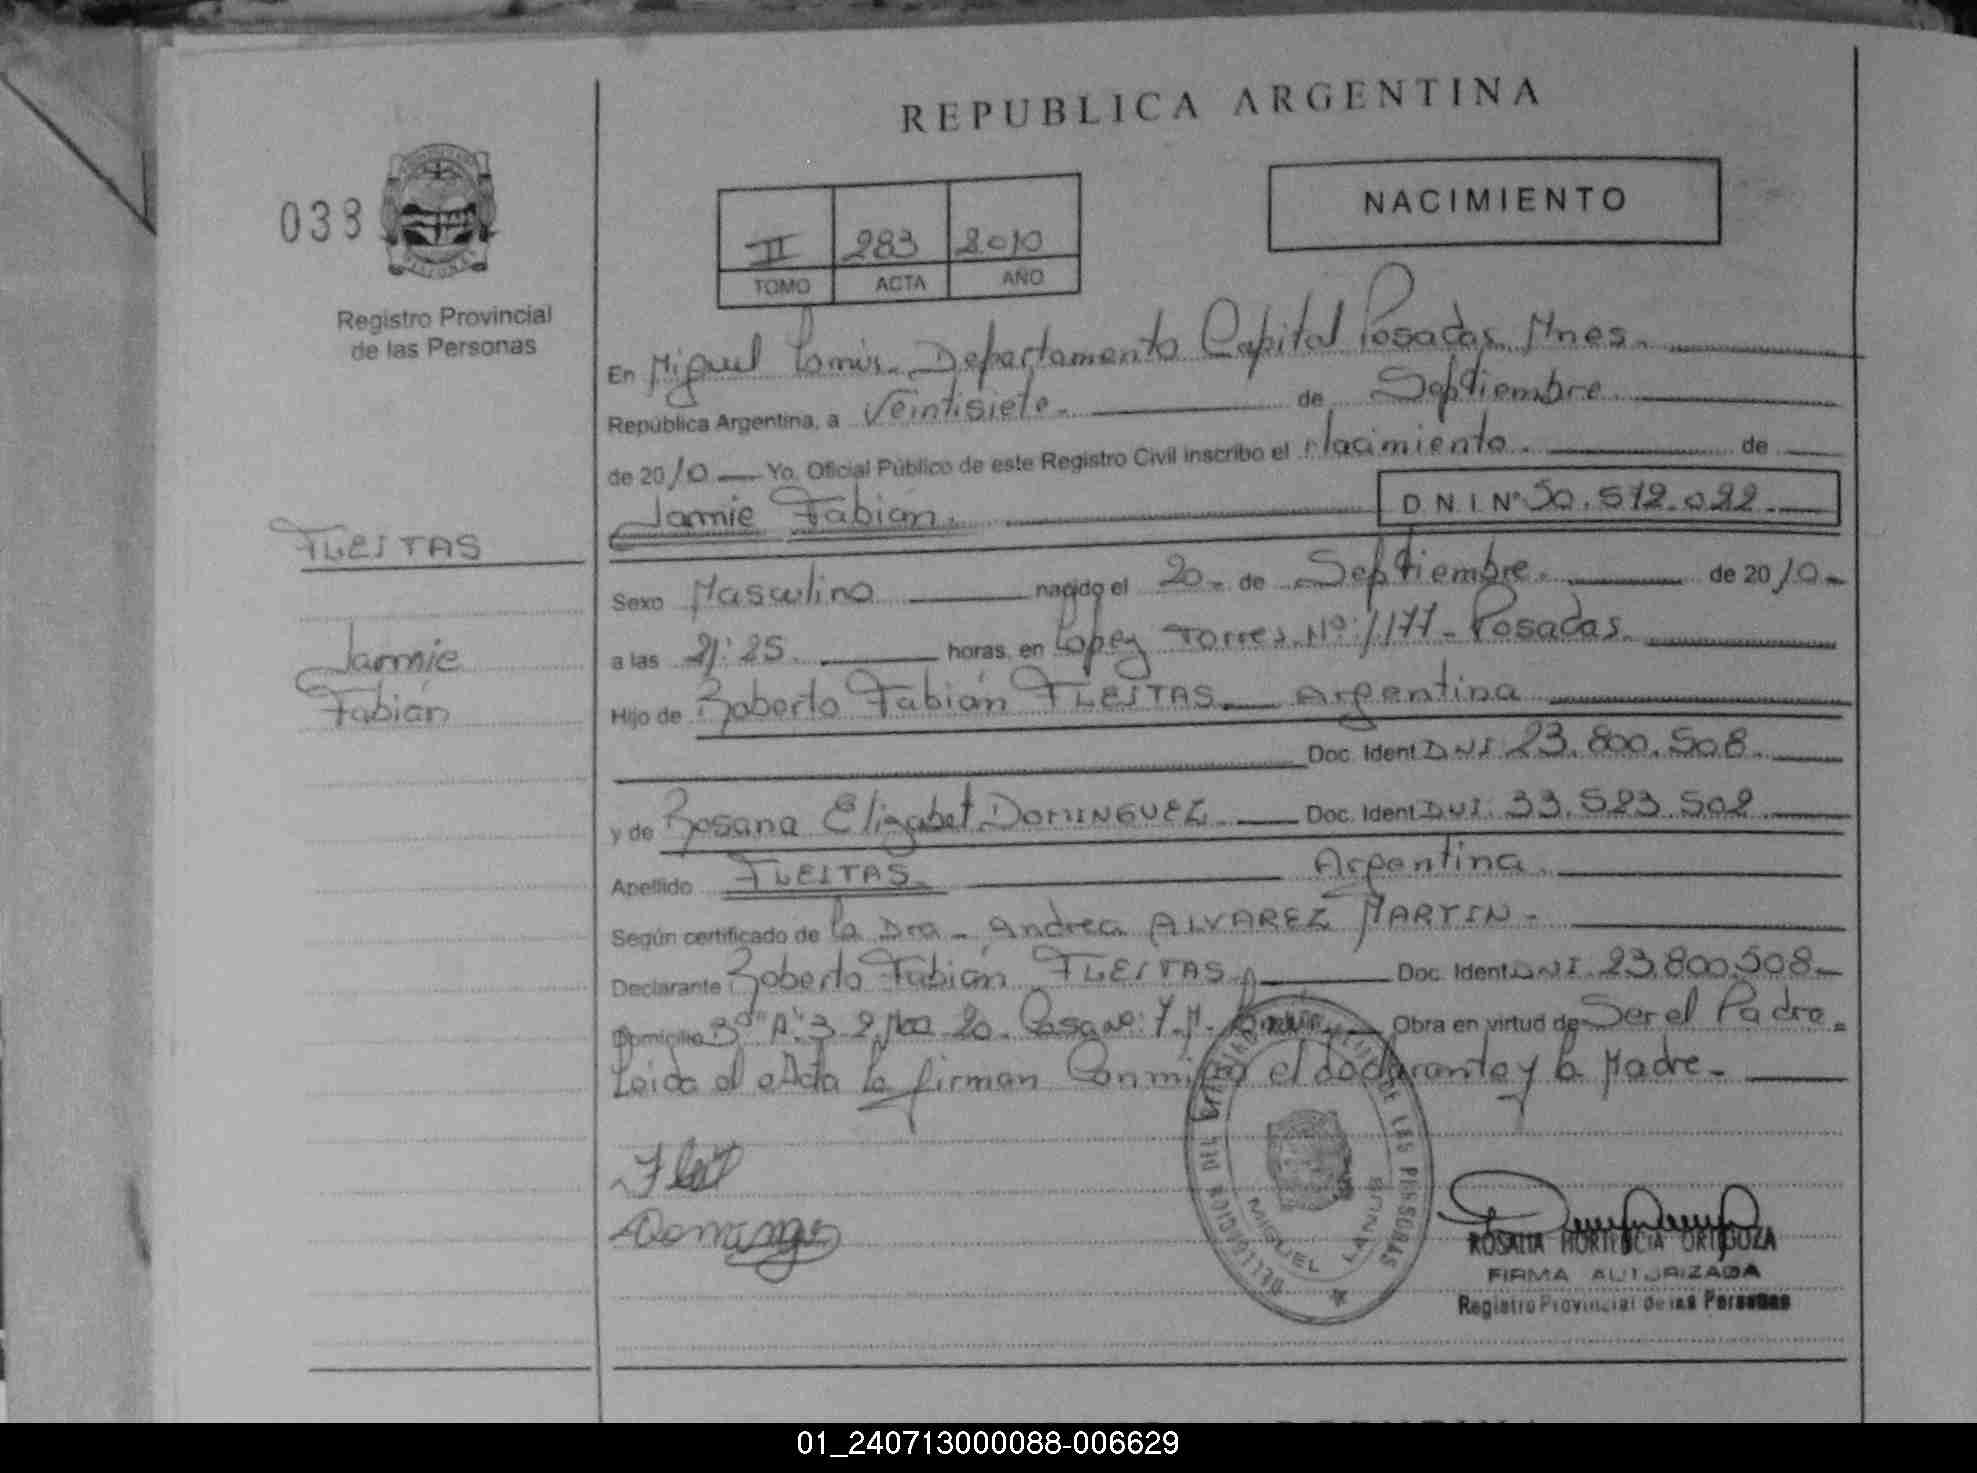 REPUBLICA ARGENTINA
038
NACIMIENTO
II 283 2010
TOMO ACTA AÑO
Registro Provincial
de las Personas
En Miguel Lanús. Departamento Capital Posadas Mnes.
República Argentina, a Veintisiete. de Septiembre.
de 2010 Yo, Oficial Público de este Registro Civil inscribo el Nacimiento. de
Jamie Fabián. D.N.I. Nº 50.572.022.
FLEITAS
Sexo Masculino nacido el 20. de Septiembre. de 2010.
Jamie
a las 21:25. horas, en Lopez Torres Nº 1177 - Posadas.
Fabián
Hijo de Roberto Fabián FLEITAS. Argentina
Doc. Ident. DNI. 23.800.508.
y de Rosana Elizabet DOMINGUEZ. Doc. Ident. DNI. 33.523.502.
Apellido FLEITAS. Argentina.
Según certificado de la Dra. Andrea ALVAREZ MARTIN.
Declarante Roberto Fabián FLEITAS. Doc. Ident. DNI. 23.800.508.
Domicilio Obra en virtud de Ser el Padre.
Leída el Acta la firman Conmigo el declarante y la Madre.
DELEGACION DEL LAS PERSONAS
MIGUEL LANUS
ROSALIA HORTENCIA ORTIGOZA
FIRMA AUTORIZADA
Registro Provincial de las Personas
01_240713000088-006629